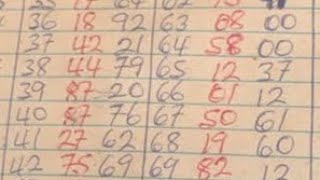 36 18 92 63 08 00
37 42 21 64 58 00
38 44 79 65 12 37
39 87 20 66 01 12
40 87 76 67 50 61
41 27 62 68 19 60
42 75 69 69 82 12